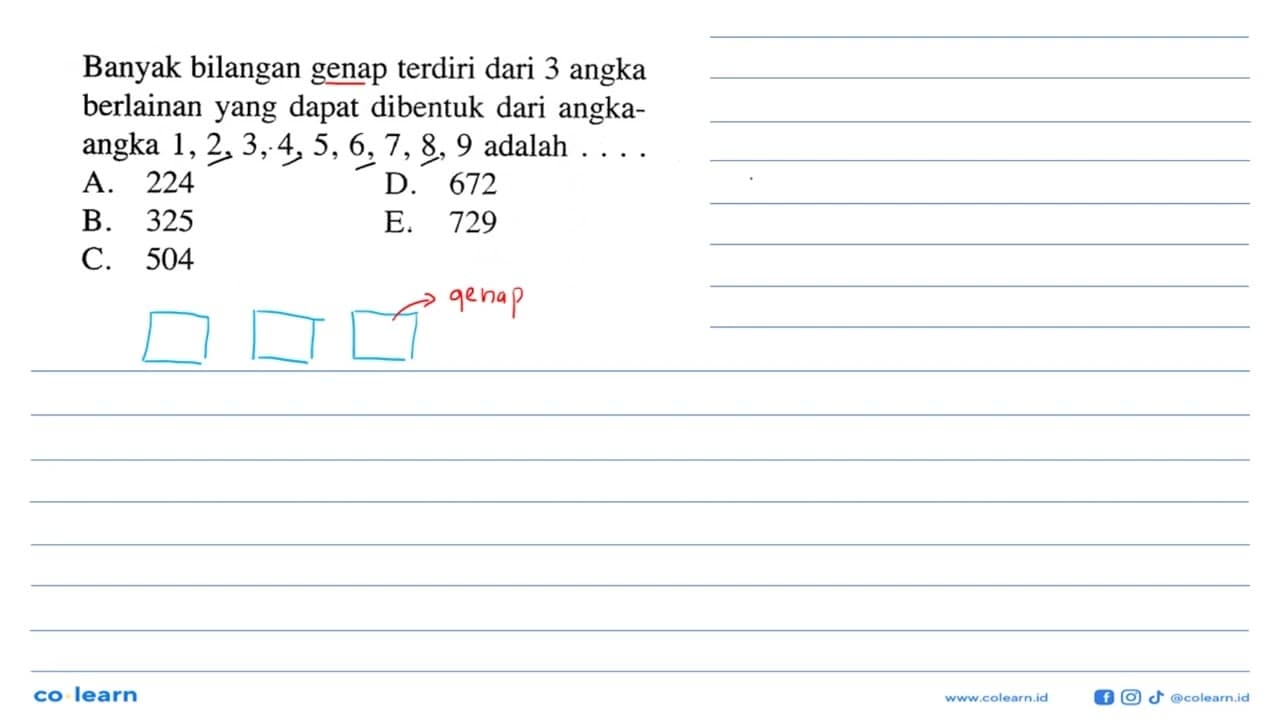 Banyak bilangan genap terdiri dari 3 angka
berlainan yang dapat dibentuk dari angka-
angka 1, 2, 3, 4, 5, 6, 7, 8, 9 adalah . . . .
A. 224 D. 672
B. 325 E. 729
C. 504
genap
co learn
www.colearn.id @colearn.id